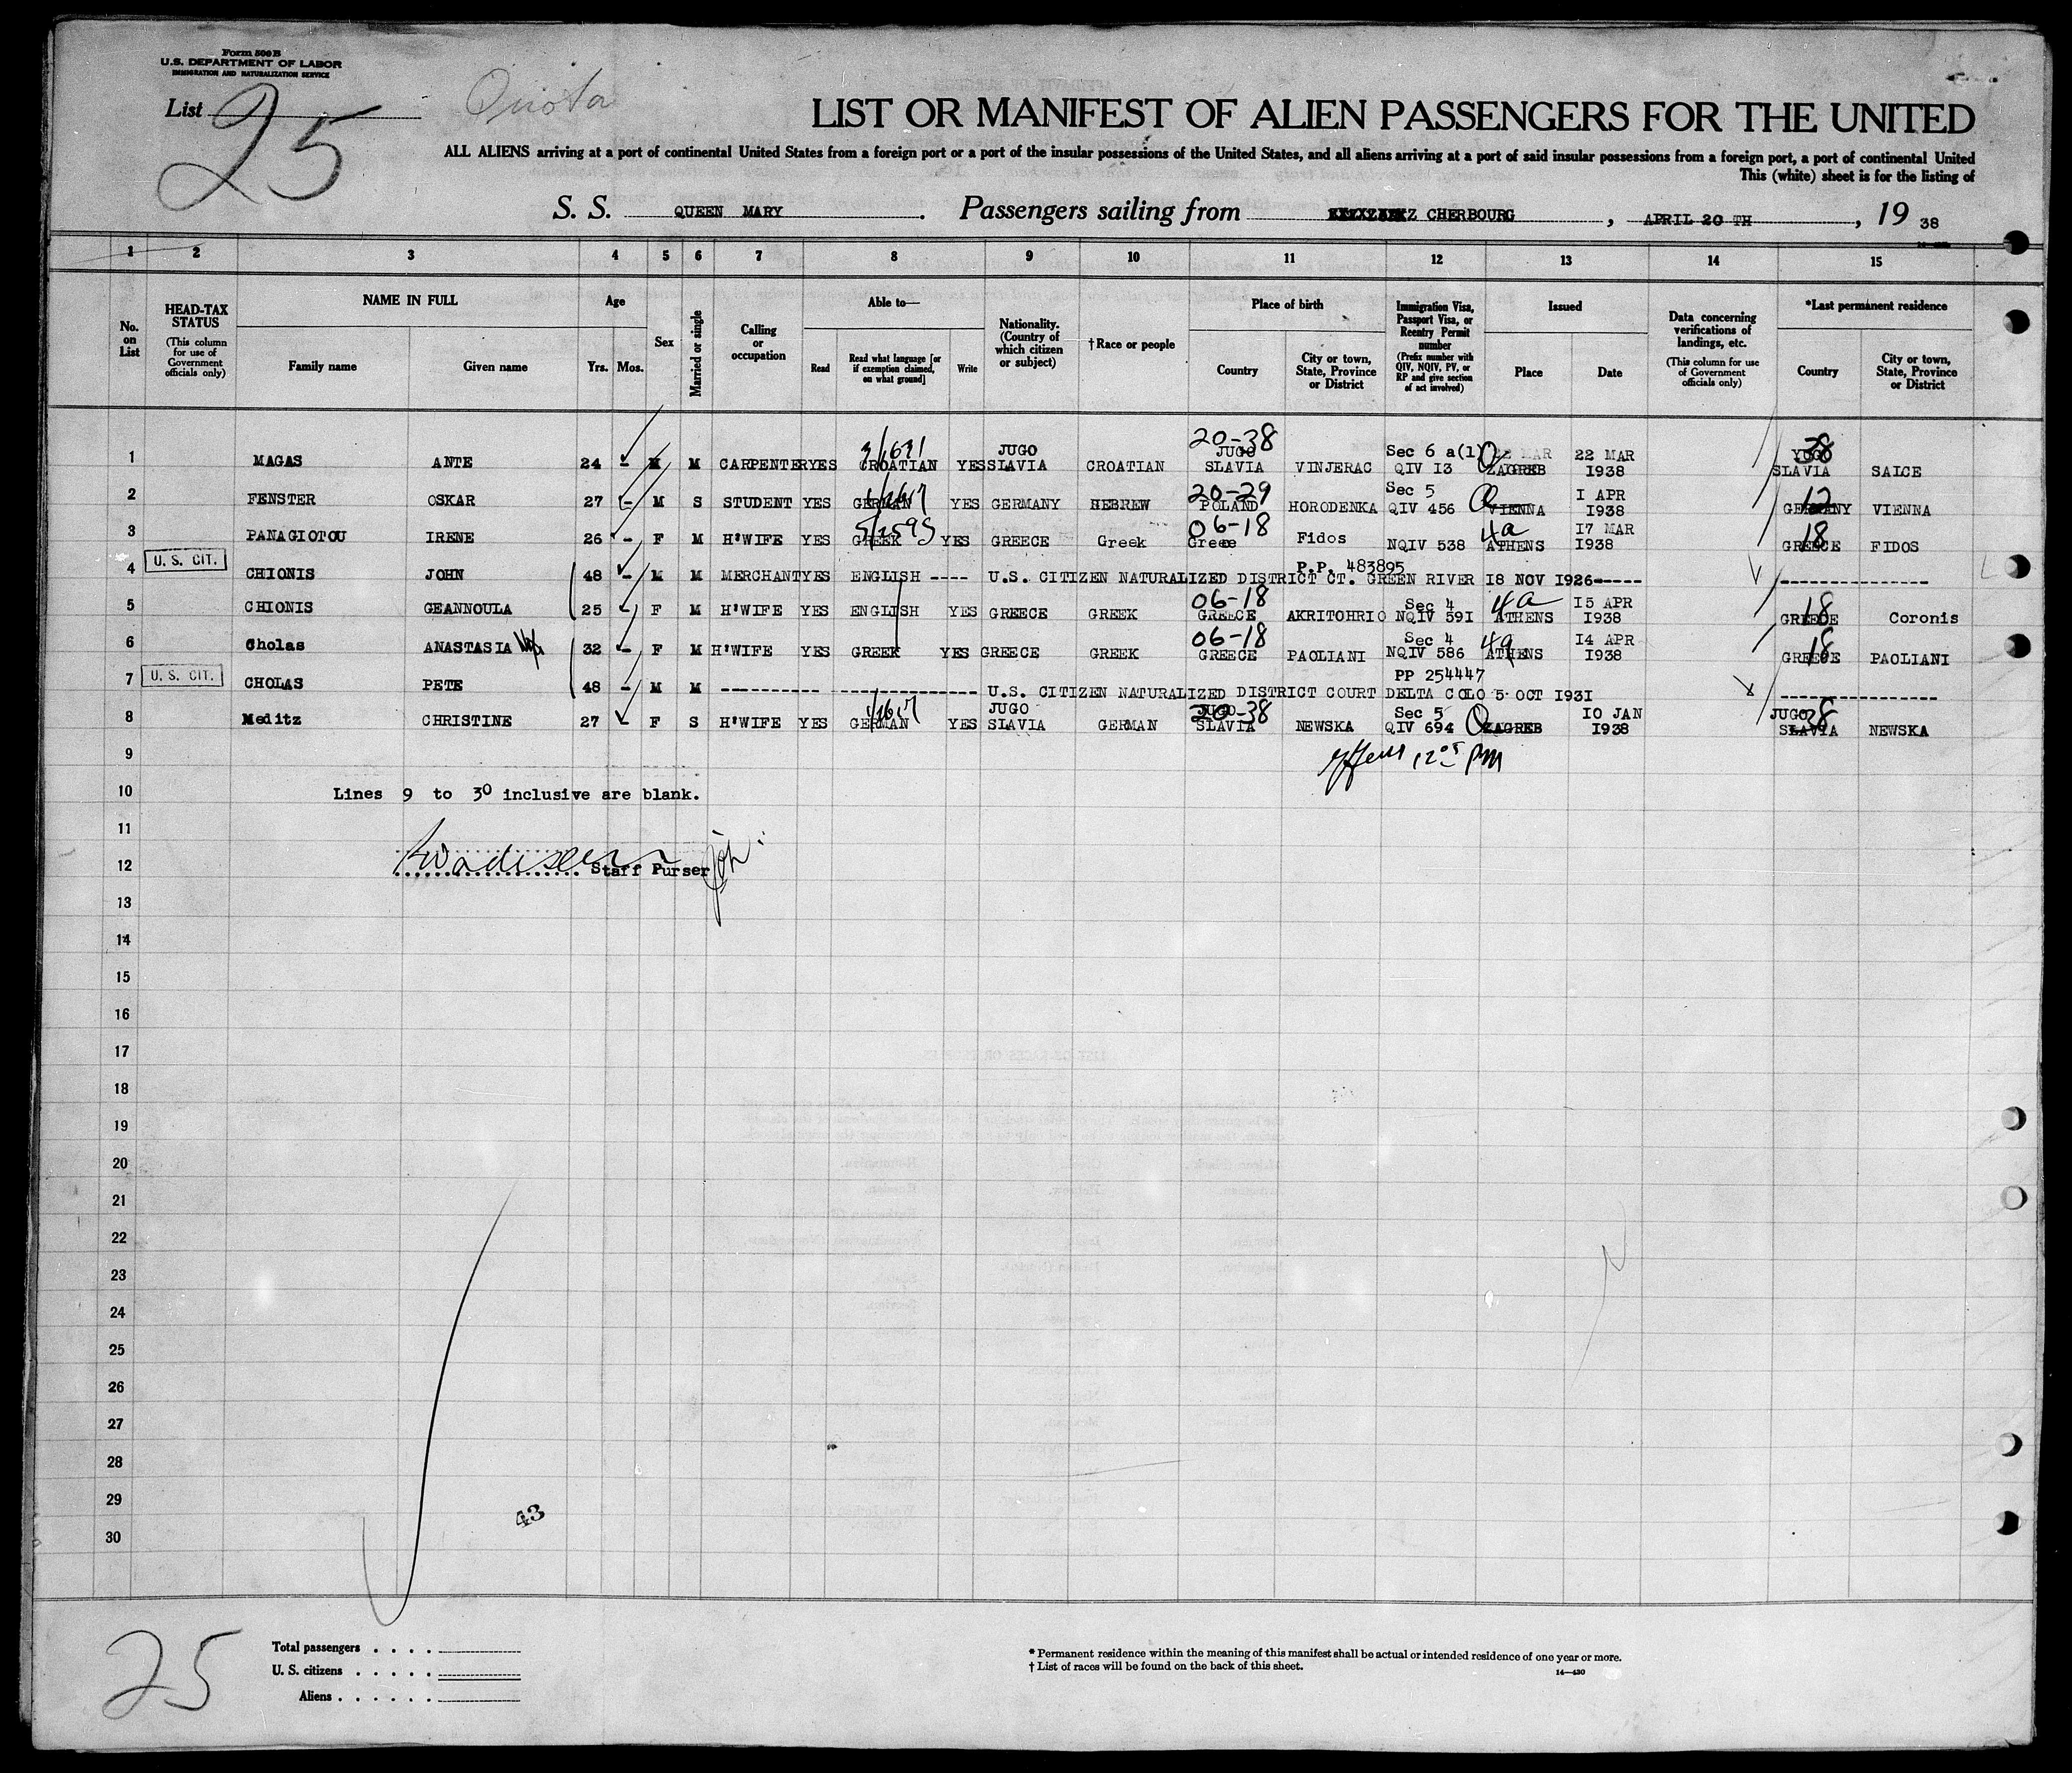 Form 500B
U.S. DEPARTMENT OF LABOR
IMMIGRATION AND NATURALIZATION SERVICE
List 25
Quota
LIST OR MANIFEST OF ALIEN PASSENGERS FOR THE UNITED
ALL ALIENS arriving at a port of continental United States from a foreign port or a port of the insular possessions of the United States, and all aliens arriving at a port of said insular possessions from a foreign port, a port of continental United
This (white) sheet is for the listing of
S. S. QUEEN MARY. Passengers sailing from CHERBOURG, APRIL 20 TH, 19 38
1 2 3 4 5 6 7 8 9 10 11 12 13 14 15
No. on List
HEAD-TAX STATUS (This column for use of Government officials only)
NAME IN FULL
Family name Given name
Age
Yrs. Mos.
Sex
Married or single
Calling or occupation
Able to—
Read Read what language [or if exemption claimed, on what ground] Write
Nationality. (Country of which citizen or subject)
†Race or people
Place of birth
Country City or town, State, Province or District
Immigration Visa, Passport Visa, or Reentry Permit number (Prefix number with QIV, NQIV, PV, or RP and give section of act involved)
Issued
Place Date
Data concerning verifications of landings, etc. (This column for use of Government officials only)
*Last permanent residence
Country City or town, State, Province or District
1 MAGAS ANTE 24 - M M CARPENTER YES CROATIAN YES JUGO SLAVIA CROATIAN 20-38 JUGO SLAVIA VINJERAC Sec 6 a(1) QIV 13 ZAGREB 22 MAR 1938 38 YUGO SLAVIA SALCE
2 FENSTER OSKAR 27 - M S STUDENT YES GERMAN YES GERMANY HEBREW 20-29 POLAND HORODENKA Sec 5 QIV 456 VIENNA 1 APR 1938 12 GERMANY VIENNA
3 PANAGIOTOU IRENE 26 - F M H'WIFE YES 5/2595 GREEK YES GREECE Greek 06-18 Greece Fidos NQIV 538 4a ATHENS 17 MAR 1938 18 GREECE FIDOS
4 U. S. CIT. CHIONIS JOHN 48 - M M MERCHANT YES ENGLISH ---- U.S. CITIZEN NATURALIZED DISTRICT CT. GREEN RIVER 18 NOV 1926----- P.P. 483895 ----------------
5 CHIONIS GEANNOULA 25 - F M H'WIFE YES ENGLISH YES GREECE GREEK 06-18 GREECE AKRITOHRIO Sec 4 NQIV 591 4a ATHENS 15 APR 1938 18 GREECE Coronis
6 Cholas ANASTASIA 32 - F M H'WIFE YES GREEK YES GREECE GREEK 06-18 GREECE PAOLIANI Sec 4 NQIV 586 4a ATHENS 14 APR 1938 18 GREECE PAOLIANI
7 U. S. CIT. CHOLAS PETE 48 - M M ---------- --------------- U.S. CITIZEN NATURALIZED DISTRICT COURT DELTA COLO 5 OCT 1931 PP 254447 -----------------
8 Meditz CHRISTINE 27 F S H'WIFE YES GERMAN YES JUGO SLAVIA GERMAN 20-38 JUGO SLAVIA NEWSKA Sec 5 QIV 694 ZAGREB 10 JAN 1938 38 JUGO SLAVIA NEWSKA
9
12 05 PM
10 Lines 9 to 30 inclusive are blank.
11
12 Staff Purser
13
14
15
16
17
18
19
20
21
22
23
24
25
26
27
28
29
43
30
25
Total passengers . . . .
U. S. citizens . . . . .
Aliens . . . . . .
* Permanent residence within the meaning of this manifest shall be actual or intended residence of one year or more.
† List of races will be found on the back of this sheet.
14—430